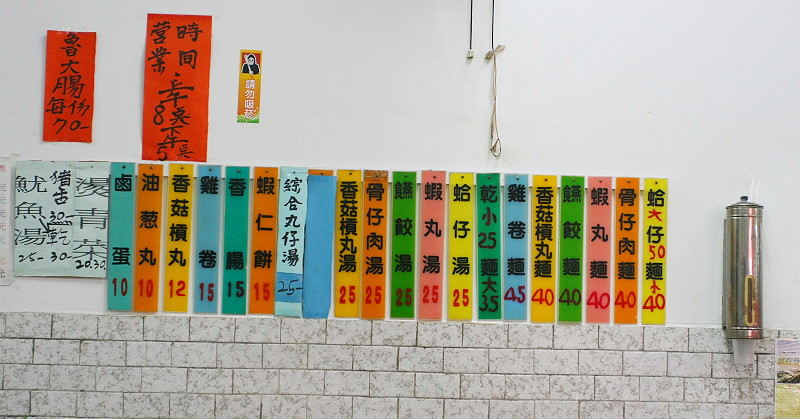 魯大腸每份
70-
時間
營業
請勿吸菸
魷魚湯
25-
豬舌
30-
乾
30-
湯青菜
20.30.
鹵蛋
10
油葱丸
10
香菇槓丸
12
雞卷
15
香腸
15
蝦仁餅
15
綜合丸仔湯
25-
香菇槓丸湯
25
骨仔肉湯
25
餛餃湯
25
蝦丸湯
25
蛤仔湯
25
乾麵
小25
大35
雞卷麵
45
香菇槓丸麵
40
餛餃麵
40
蝦丸麵
40
骨仔肉麵
40
蛤仔麵
大50
小40